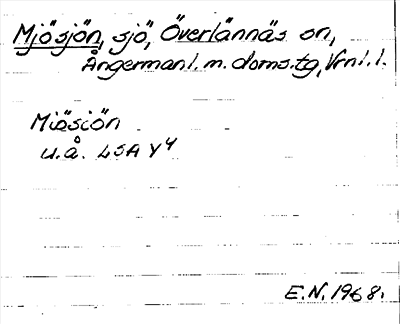 Mjösjön, sjö, Överlännäs sn,
Ångermanl. m. doms.tg, Vrnl. l.
Miösiön
u.å. LSA Y4
E.N. 1968.